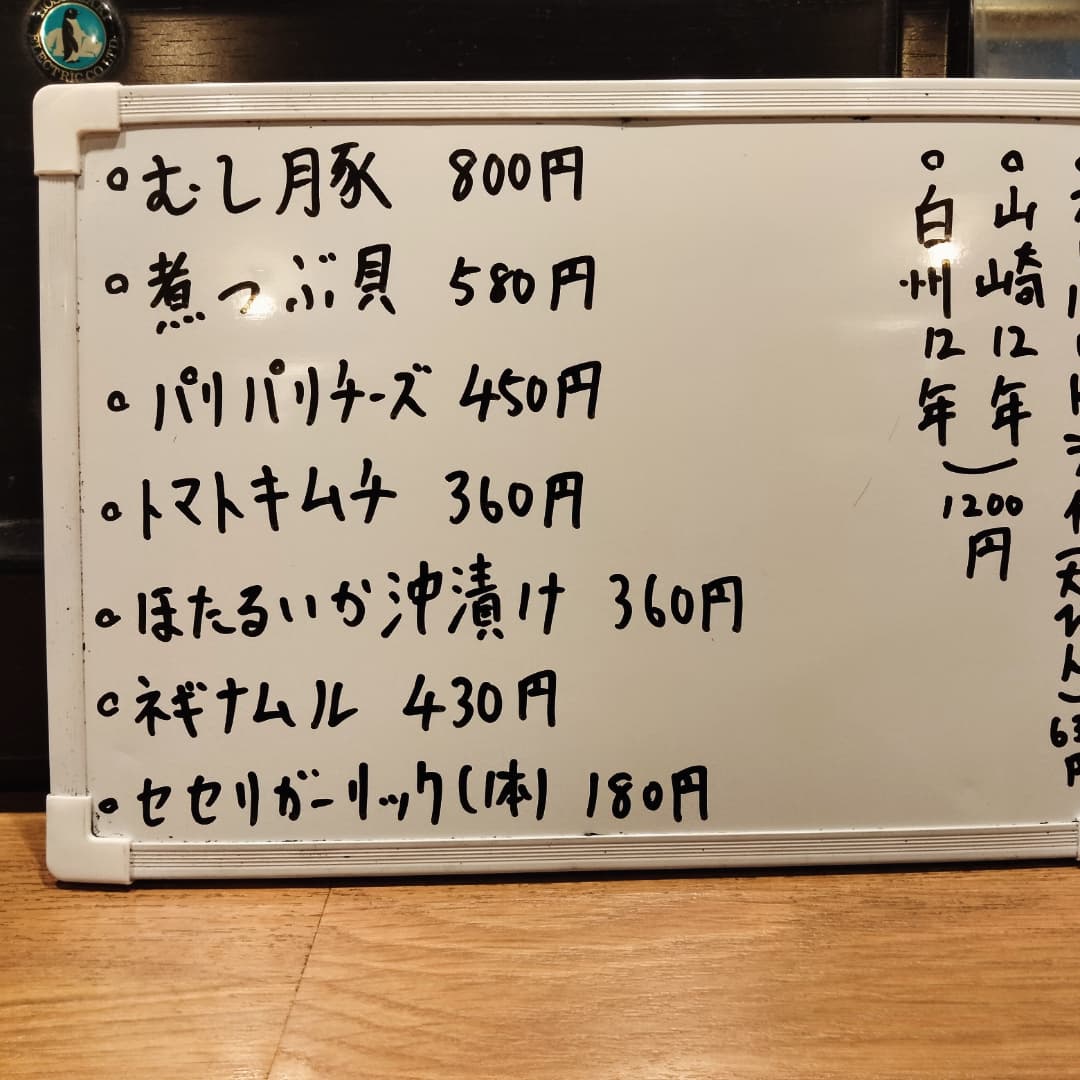 。むし月豚 800円
。煮つぶ貝 580円
。パリパリチーズ 450円
。トマトキムチ 360円
。ほたるいか沖漬け 360円
。ネギナムル 430円
。セセリガーリック(1本) 180円
。山崎12年
。白州12年
1200円
ELECTRIC CO.LTD.